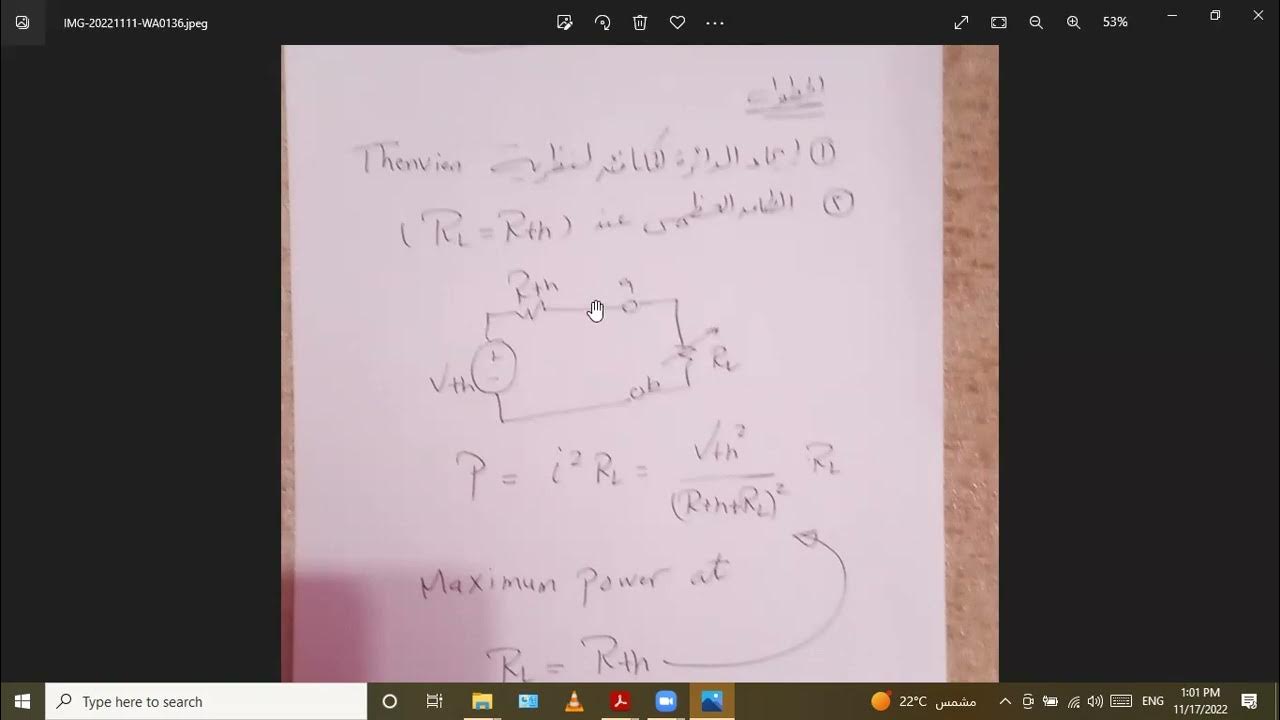 IMG-20221111-WA0136.jpeg
53%
① الدائرة لنظرية Thenvien
② عند (RL = Rth)
Rth
a
Vth
+
-
RL
b
P = i² RL = Vth² / (Rth+RL)² RL
Maximum Power at
RL = Rth
Type here to search
22°C مشمس
ENG
1:01 PM
11/17/2022